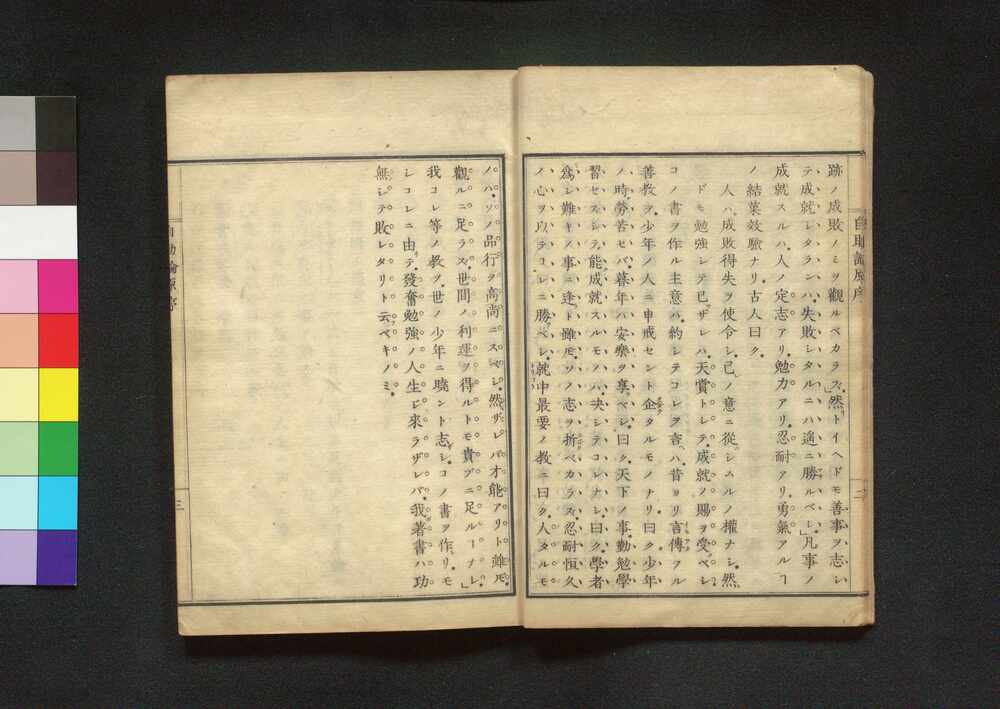 跡ノ成敗ノミヲ觀ルベカラズ、然トイヘドモ善事ヲ志シ
テ成就シタランハ、失敗シタルニハ遙ニ勝ルベシ」凡事ノ
成就スルハ、人ノ定志アリ、勉力アリ、忍耐アリ、勇氣アルヿ
ノ結菓效驗ナリ、古人曰ク、
人ハ、成敗得失ヲ使令シ、己ノ意ニ從シムルノ權ナシ、然
ドモ勉強シテ已ザレハ、天賞トシテ、成就ノ賜ヲ受ベシ、
コノ書ヲ作ル主意ハ、約シテコレヲ言ハ、昔ヨリ言傳フル
善教ヲ、少年ノ人ニ申戒セント企タルモノナリ、曰ク、少年
ノ時勞苦セバ、暮年ハ安樂ヲ享ベシ、曰ク、天下ノ事、勤勉學
習セズシテ、能成就スルモノハ、决シテコレナシ、曰ク、學者
爲シ難キノ事ニ逢ト雖𪜈、ソノ志ヲ折ベカラズ、忍耐恒久
ノ心ヲ以テコレニ勝ベシ、就中最要ノ教ニ曰ク、人タルモ
自助論原序
二
ノハ、ソノ品行ヲ高尚ニスベシ、然ザレバ才能アリト雖𪜈、
觀ルニ足ラズ、世間ノ利運ヲ得ルトモ貴ブニ足ルヿナシ」
我コレ等ノ教ヲ、世ノ少年ニ曉ント志シ、コノ書ヲ作リ、モ
シコレニ由テ、發奮勉強ノ人生ジ來ラザレバ、我著書ハ功
無シテ敗レタリト云ベキノミ、
自助論原序
三